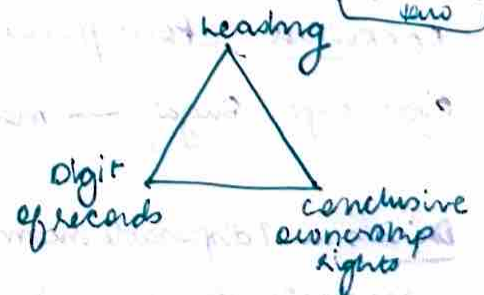 Leading
Digit
of records
conclusive
ownership
rights